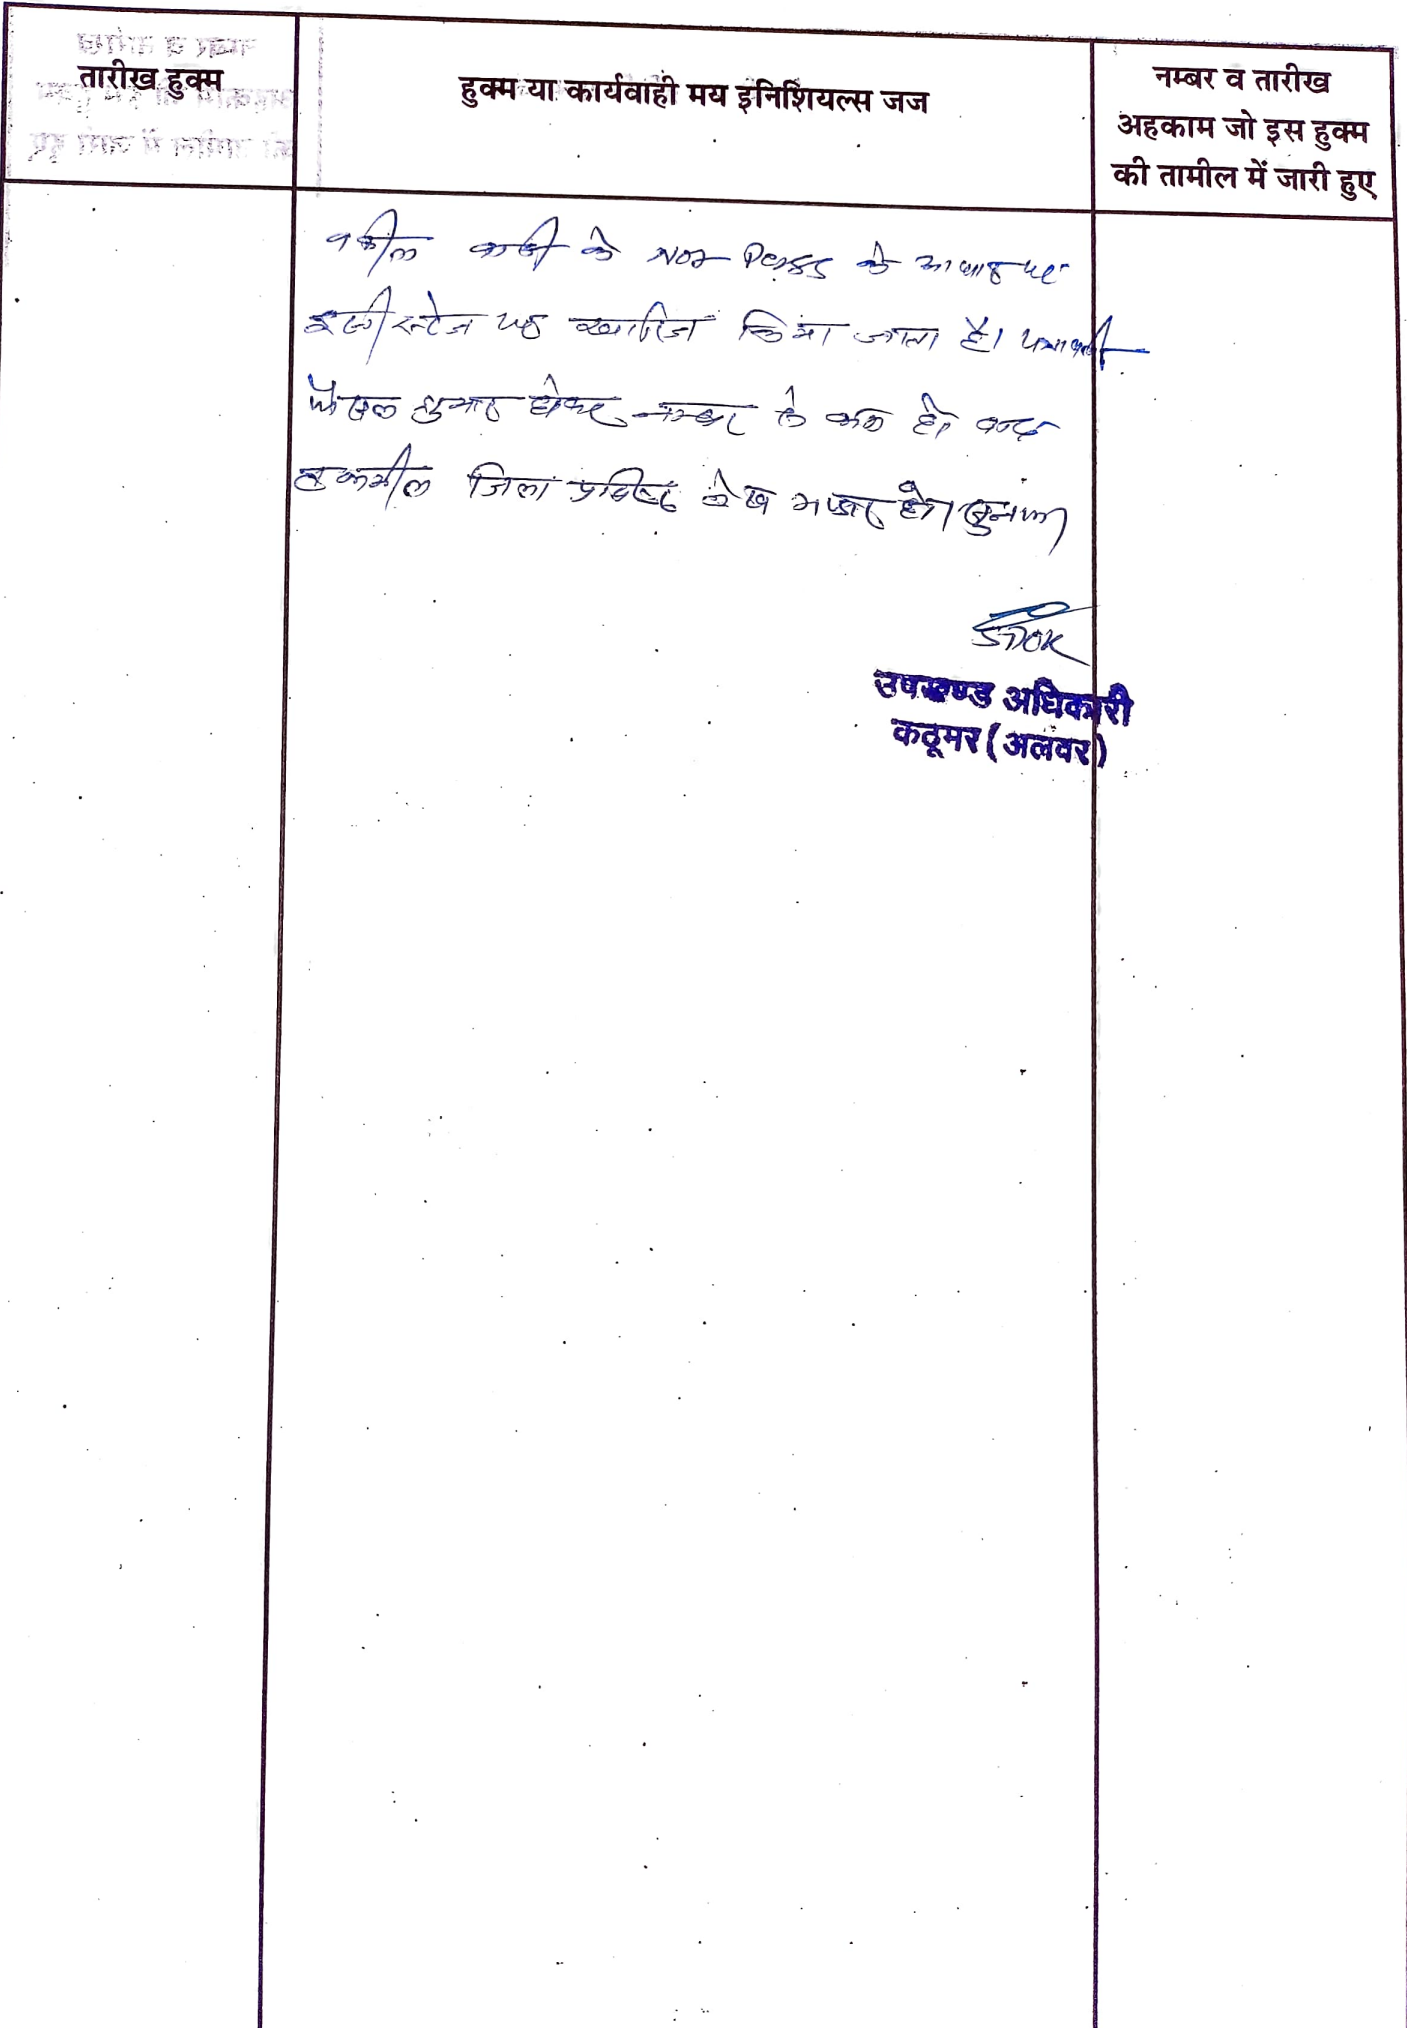 तारीख हुक्म
हुक्म या कार्यवाही मय इनिशियल्स जज
नम्बर व तारीख
अहकाम जो इस हुक्म
की तामील में जारी हुए
वकील वादी के Not Press के आधार पर
इसी स्टेज पर खारिज किया जाता है। पत्रावली
फैसल शुमार होकर नम्बर से कम हो। बाद
तकमील जिला अभिलेखागार हो।
उपखण्ड अधिकारी
कठूमर (अलवर)